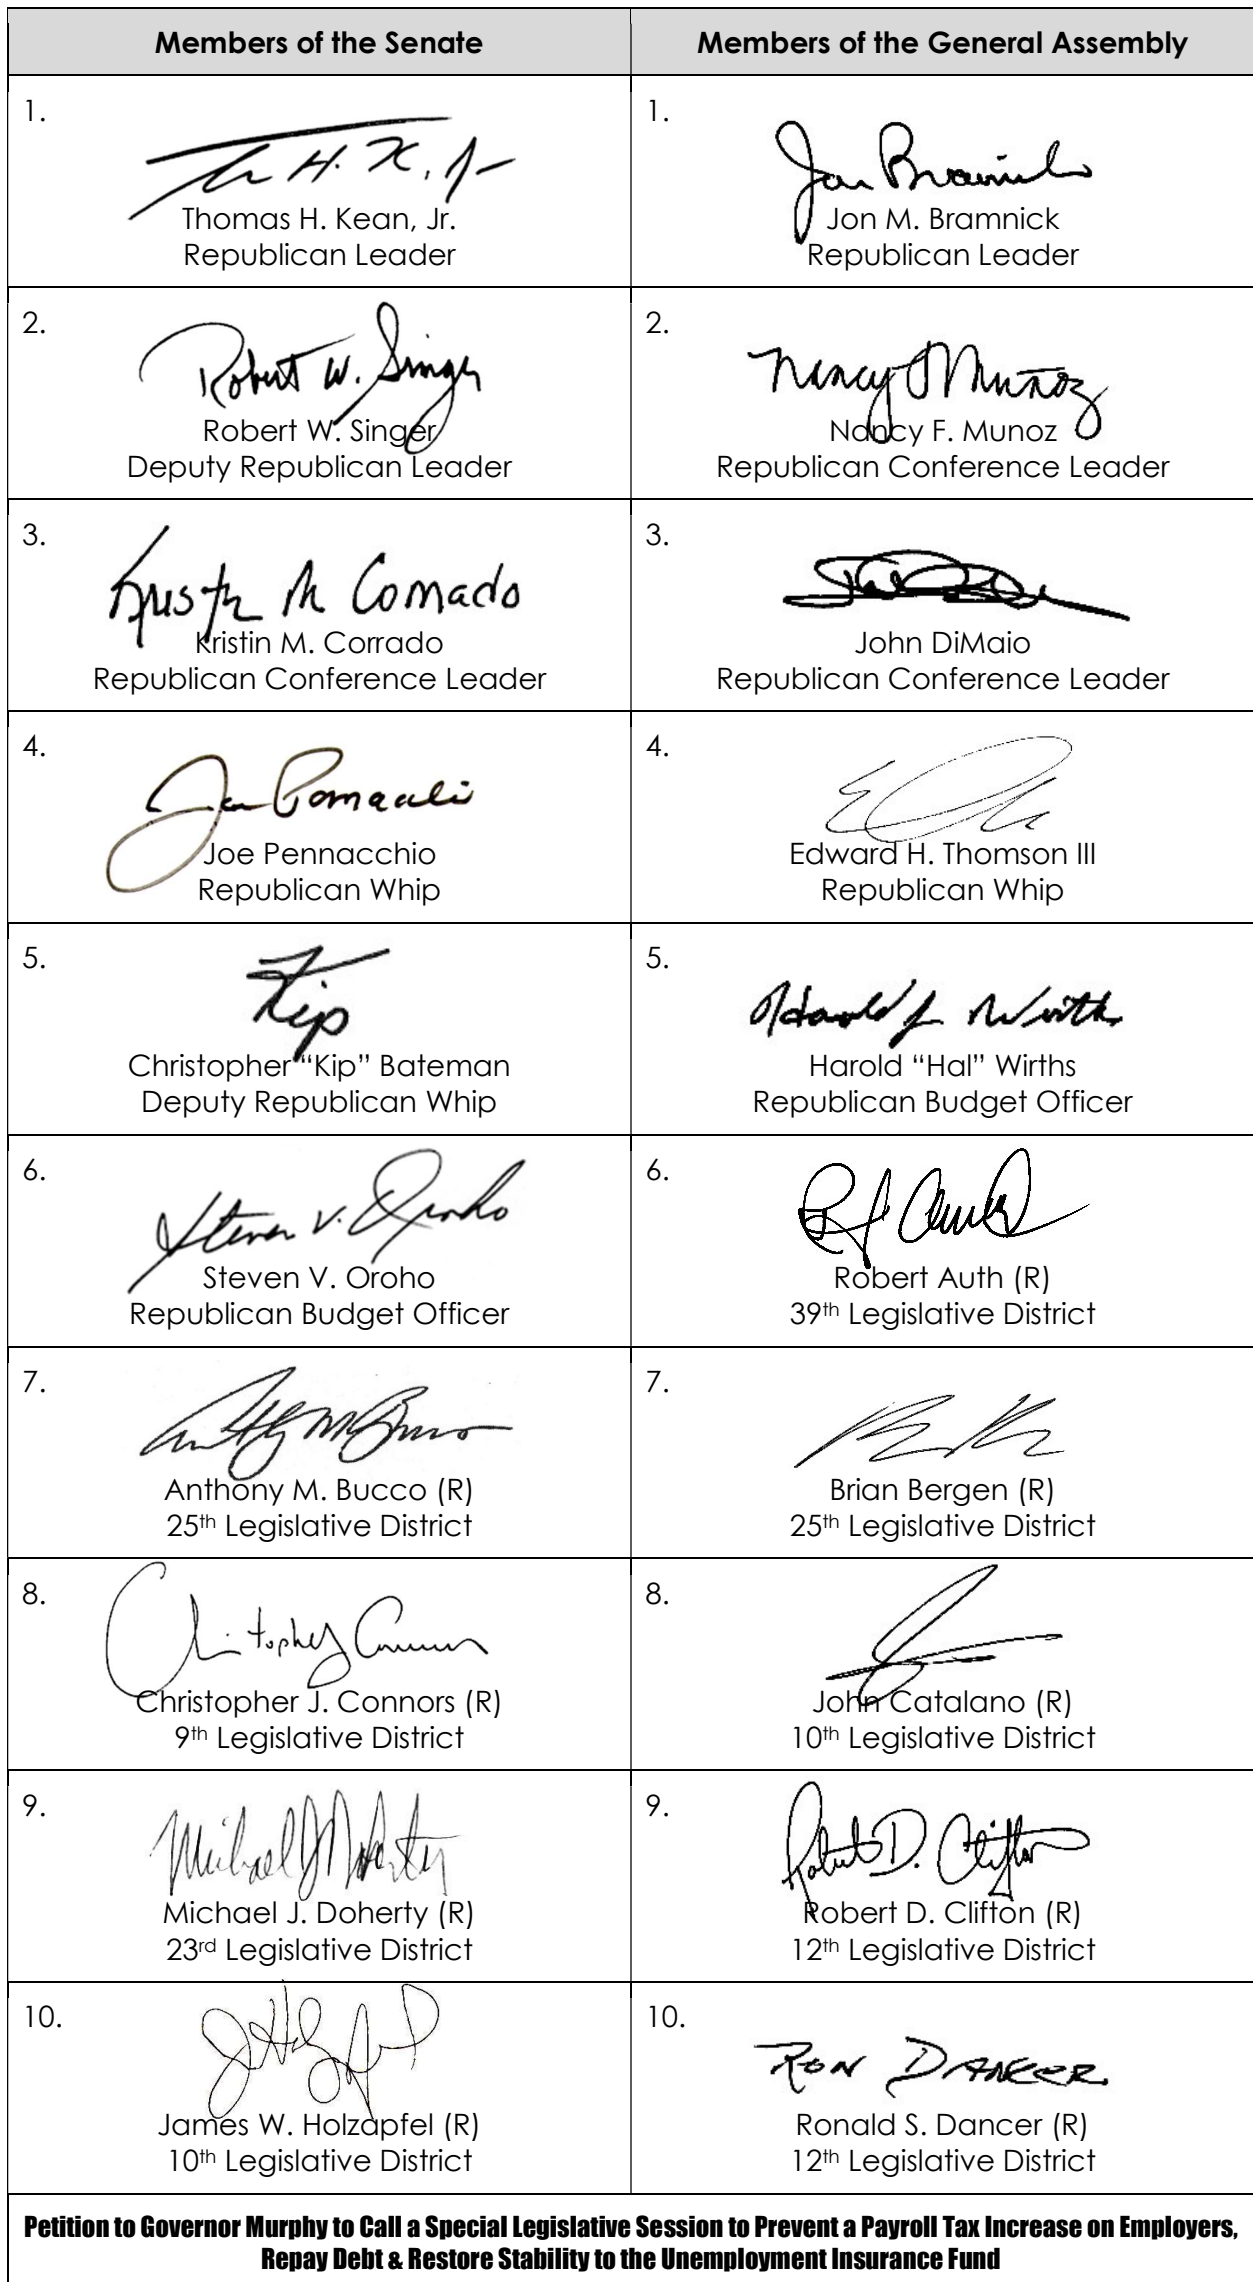 Members of the Senate
Members of the General Assembly
1.
Thomas H. Kean, Jr.
Republican Leader
1.
Jon M. Bramnick
Republican Leader
2.
Robert W. Singer
Robert W. Singer
Deputy Republican Leader
2.
Nancy F. Munoz
Republican Conference Leader
3.
Kristin M. Corrado
Republican Conference Leader
3.
John DiMaio
Republican Conference Leader
4.
Joe Pennacchio
Republican Whip
4.
Edward H. Thomson III
Republican Whip
5.
Kip
Christopher “Kip” Bateman
Deputy Republican Whip
5.
Harold “Hal” Wirths
Republican Budget Officer
6.
Steven V. Oroho
Steven V. Oroho
Republican Budget Officer
6.
Robert Auth (R)
39th Legislative District
7.
Anthony M. Bucco (R)
25th Legislative District
7.
Brian Bergen (R)
25th Legislative District
8.
Christopher J. Connors (R)
9th Legislative District
8.
John Catalano (R)
10th Legislative District
9.
Michael J. Doherty (R)
23rd Legislative District
9.
Robert D. Clifton
Robert D. Clifton (R)
12th Legislative District
10.
James W. Holzapfel (R)
10th Legislative District
10.
RON DANCER
Ronald S. Dancer (R)
12th Legislative District
Petition to Governor Murphy to Call a Special Legislative Session to Prevent a Payroll Tax Increase on Employers,
Repay Debt & Restore Stability to the Unemployment Insurance Fund